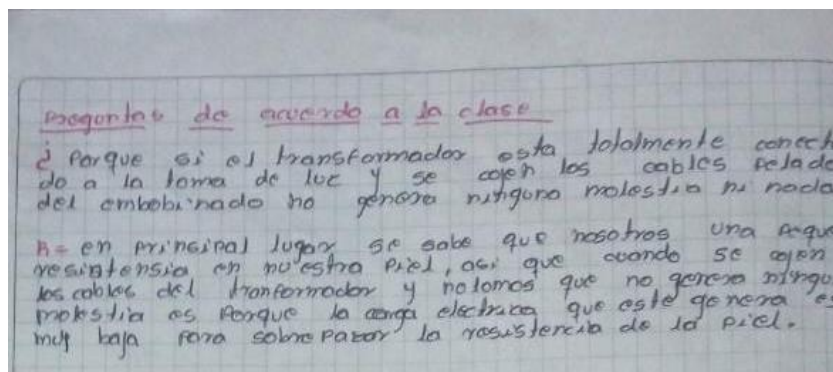 Preguntas de acuerdo a la clase
¿ Porque si el transformador esta tolalmente conech
do a la toma de luz y se cojen los cables pelado
del embobinado no genera ninguna molestia ni nada
R= en prinsipal lugar se sabe que nosotros una pequ
resintensia en nuestra piel, asi que cuando se cojen
los cables del tranformador y notomos que no genera ningu
molestia es porque la carga electrica que este genera e
muy baja para sobre pazar la resistencia de la piel.